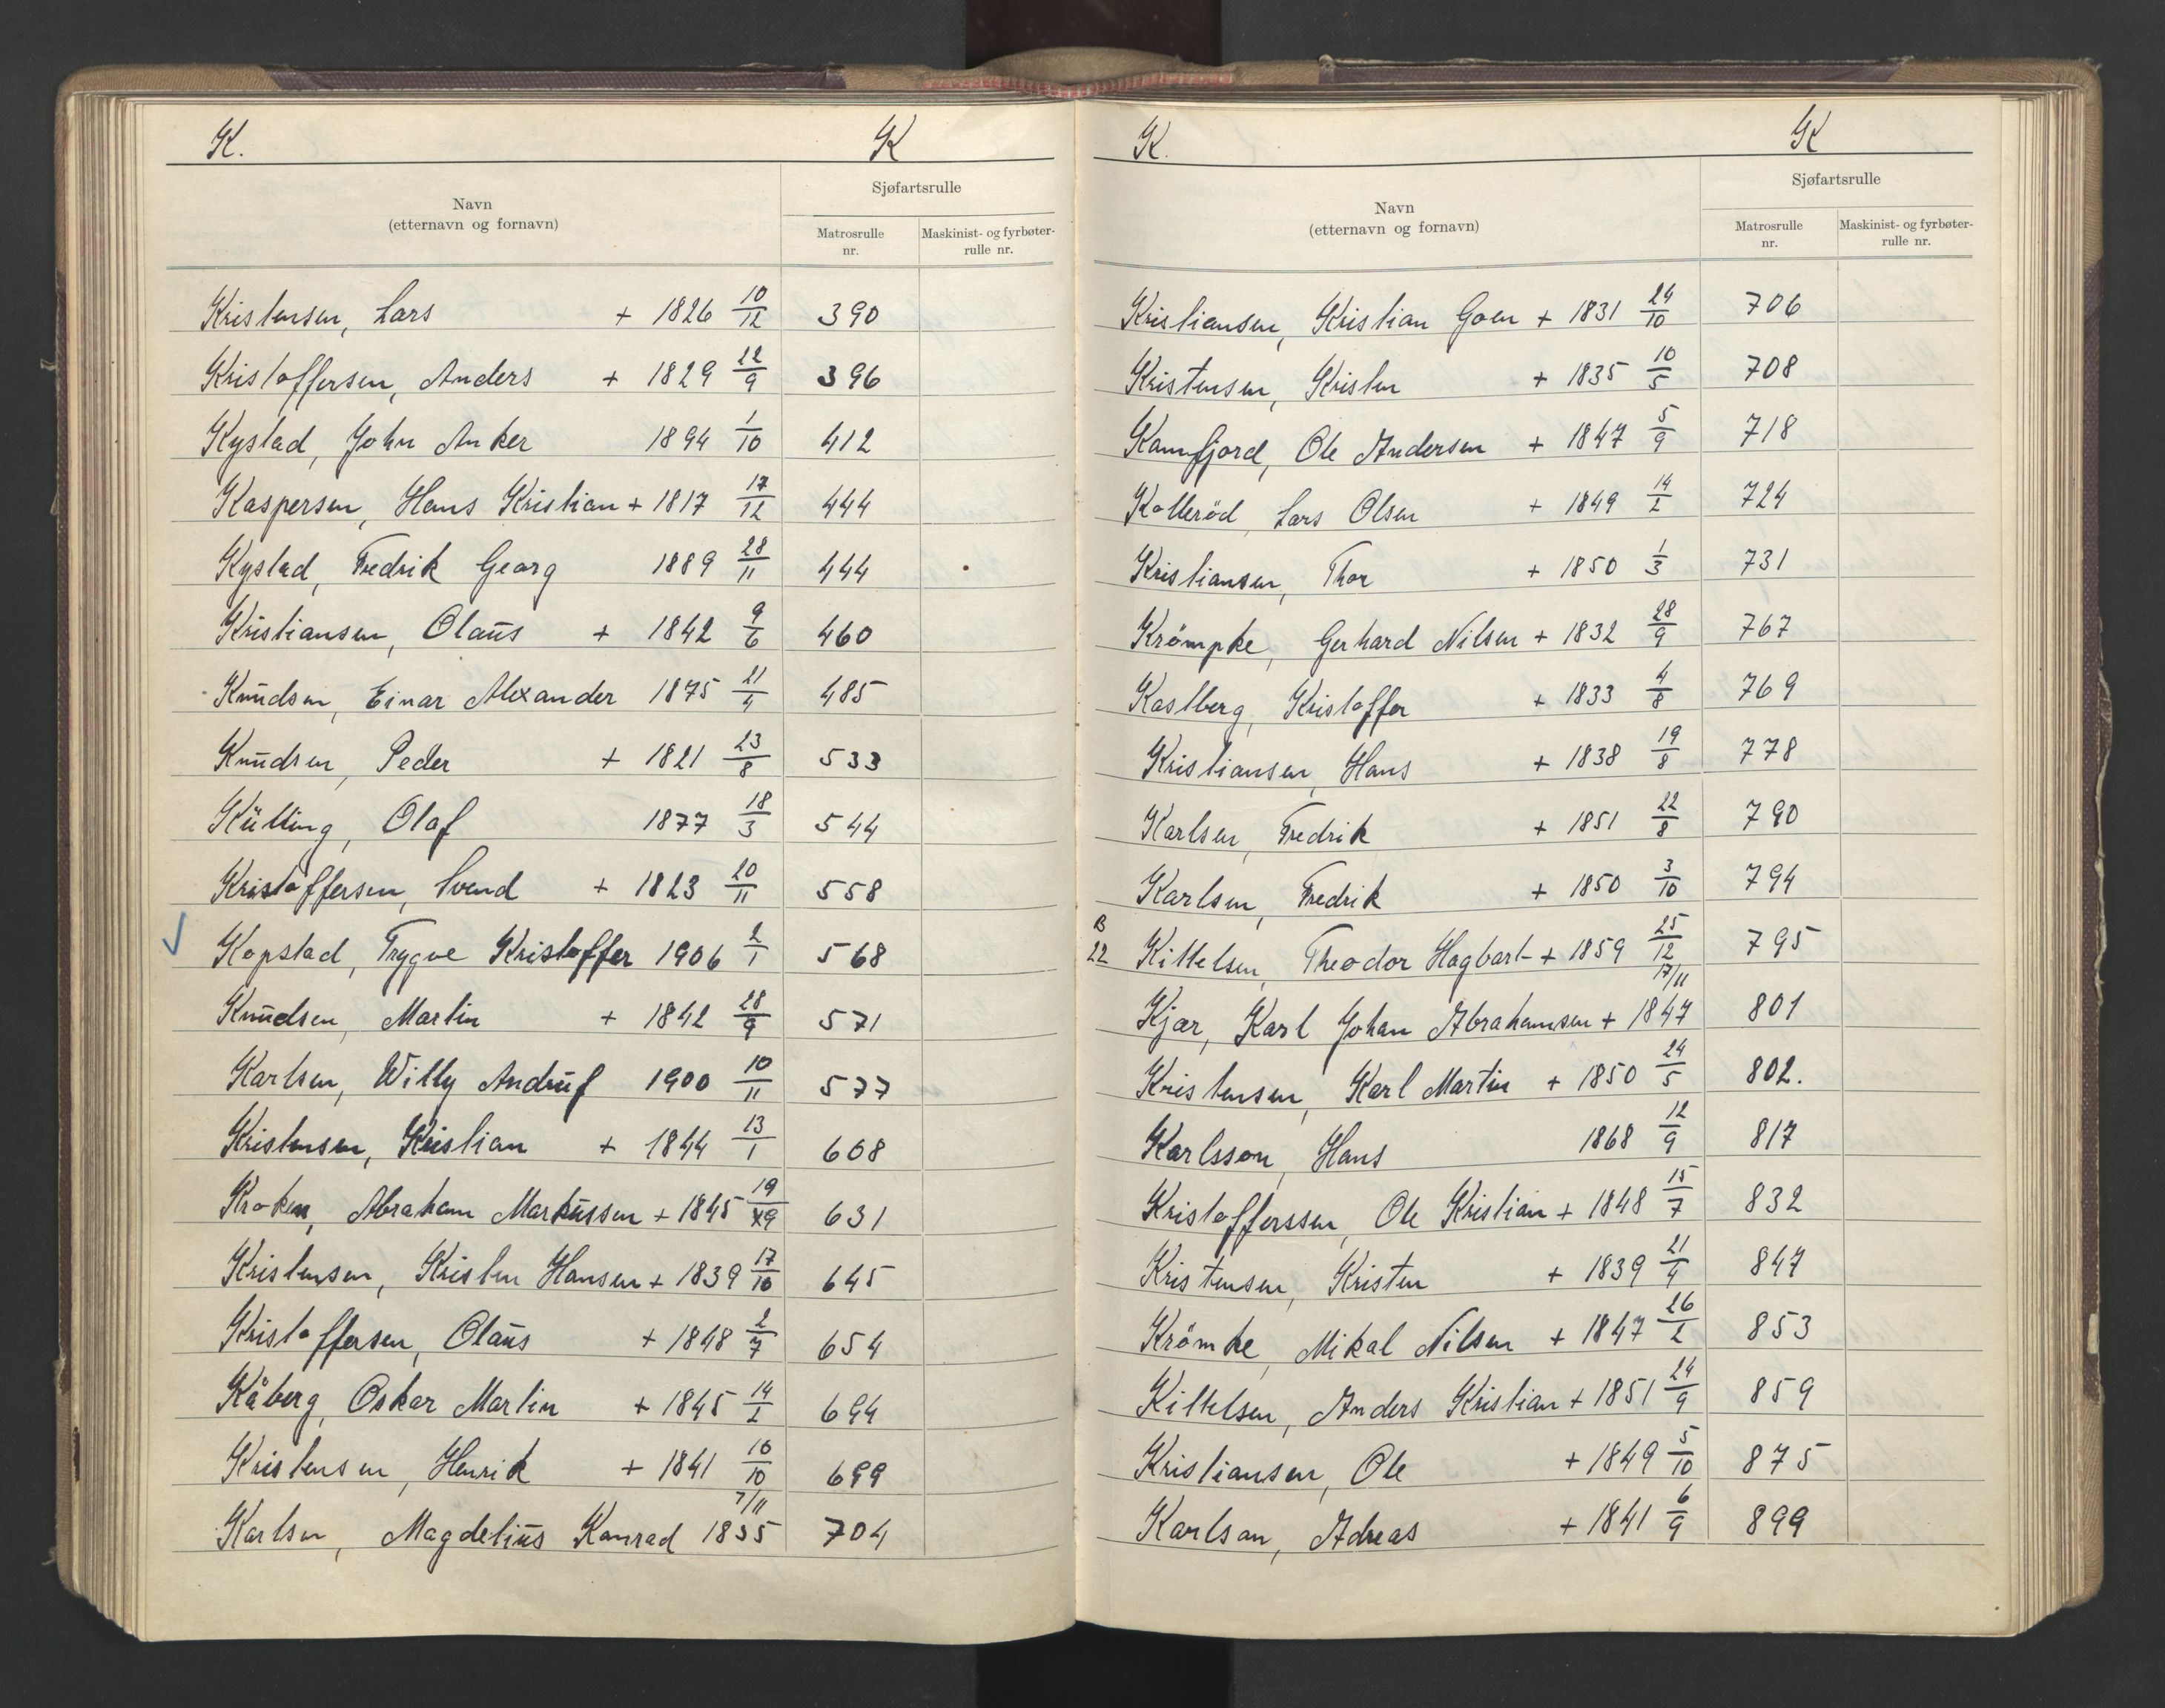 K. K
Navn
(etternavn og fornavn)
Sjøfartsrulle
Matrosrulle
nr.
Maskinist- og fyrbøter-
rulle nr.
Kristensen, Lars + 1826 10/12 390
Kristoffersen, Anders + 1829 22/9 396
Kystad, John Anker 1894 1/10 412
Kaspersen, Hans Kristian + 1817 17/12 444
Kystad, Fredrik Georg 1889 28/11 444
Kristiansen, Olaus + 1842 9/6 460
Knudsen, Einar Alexander 1875 21/4 485
Knudsen, Peder + 1821 23/8 533
Külling, Olaf 1877 18/3 544
Kristoffersen, Svend + 1823 20/11 558
Kopstad, Trygve Kristoffer 1906 2/1 568
Knudsen, Martin + 1842 28/9 571
Karlsen, Willy Anduf 1900 10/11 577
Kristensen, Kristian + 1844 13/1 608
Kroken, Abraham Markussen + 1845 19/9 631
Kristensen, Kristen Hansen + 1839 17/10 645
Kristoffersen, Olaus + 1848 2/7 654
Kåberg, Oskar Martin + 1845 14/2 694
Kristensen, Henrik + 1841 16/10 699
Karlsen, Magdelius Konrad 1835 7/11 704
K. K
Navn
(etternavn og fornavn)
Sjøfartsrulle
Matrosrulle
nr.
Maskinist- og fyrbøter-
rulle nr.
Kristiansen, Kristian Goen + 1831 24/10 706
Kristensen, Kristen + 1835 10/5 708
Kamfjord, Ole Andersen + 1847 5/9 718
Kollerød, Lars Olsen + 1849 14/2 724
Kristiansen, Thor + 1850 1/3 731
Krömpke, Gerhard Nilsen + 1832 28/9 767
Kastberg, Kristoffer + 1833 4/8 769
Kristiansen, Hans + 1838 19/8 778
Karlsen, Fredrik + 1851 22/8 790
Karlsen, Fredrik + 1850 3/10 794
B
22 Kittelsen, Theodor Hagbart + 1859 25/12 795
Kjær, Karl Johan Abrahamsen + 1847 17/11 801
Kristensen, Karl Martin + 1850 24/5 802.
Karlsson, Hans 1868 12/9 817
Kristofferssen, Ole Kristian + 1848 15/7 832
Kristensen, Kristen + 1839 21/4 847
Krömke, Mikal Nilsen + 1847 26/2 853
Kittelsen, Anders Kristian + 1851 24/9 859
Kristiansen, Ole + 1849 5/10 875
Karlson, Adreas + 1841 6/9 899